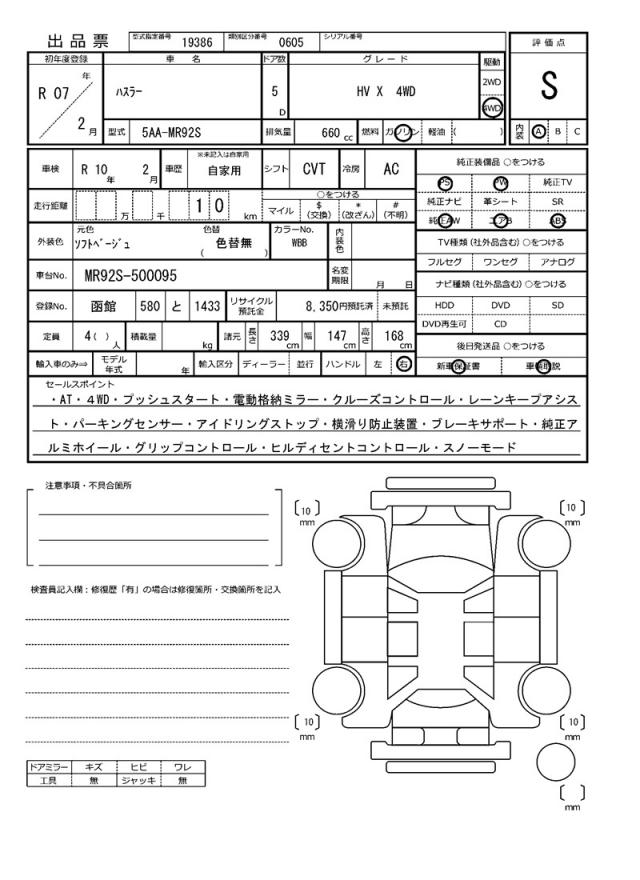 出品票 型式指定番号 19386 類別区分番号 0605 シリアル番号
初年度登録 車名 ドア数 グレード 駆動 評価点
R 07 年 2 月 ハスラー 5 D HV X 4WD 2WD 4WD S
型式 5AA-MR92S 排気量 660 cc 燃料 ガソリン 軽油 ( ) 内装 A B C
車検 R 10 年 2 月 車歴 ※未記入は自家用 自家用 シフト CVT 冷房 AC
走行距離 万 千 1 0 km ○をつける マイル $ (交換) * (改ざん) # (不明)
外装色 元色 ソフトベージュ 色替 ( 色替無 ) カラーNo. WBB 内装色
車台No. MR92S-500095 名変期限 月 日
登録No. 函館 580 と 1433 リサイクル預託金 8,350円 預託済 未預託
定員 4 ( ) 人 積載量 kg 諸元 長さ 339 cm 幅 147 cm 高さ 168 cm
輸入車のみ⇒ モデル年式 年 輸入区分 ディーラー 並行 ハンドル 左 右
純正装備品 ○をつける
PS PW 純正TV
純正ナビ 革シート SR
純正AW エアB ABS
TV種類 (社外品含む) ○をつける
フルセグ ワンセグ アナログ
ナビ種類 (社外品含む) ○をつける
HDD DVD SD
DVD再生可 CD
後日発送品 ○をつける
新車保証書 車輌取説
セールスポイント
・AT・4WD・プッシュスタート・電動格納ミラー・クルーズコントロール・レーンキープアシス
ト・パーキングセンサー・アイドリングストップ・横滑り防止装置・ブレーキサポート・純正ア
ルミホイール・グリップコントロール・ヒルディセントコントロール・スノーモード
注意事項・不具合箇所
検査員記入欄：修復歴「有」の場合は修復箇所・交換箇所を記入
ドアミラー キズ ヒビ ワレ
工具 無 ジャッキ 無
〔10〕 mm 〔10〕 mm
〔10〕 mm 〔10〕 mm
〔 〕 mm